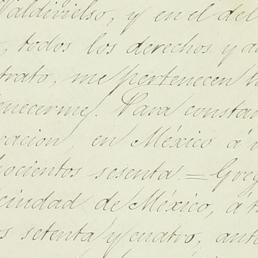 Valdivielso, y en el del
todos los derechos y a
trato, me pertenecen
necerme. Para consta
cacion, en México á
hocientos sesenta = Greg
ciudad de México, á t
os setenta y cuatro, ant